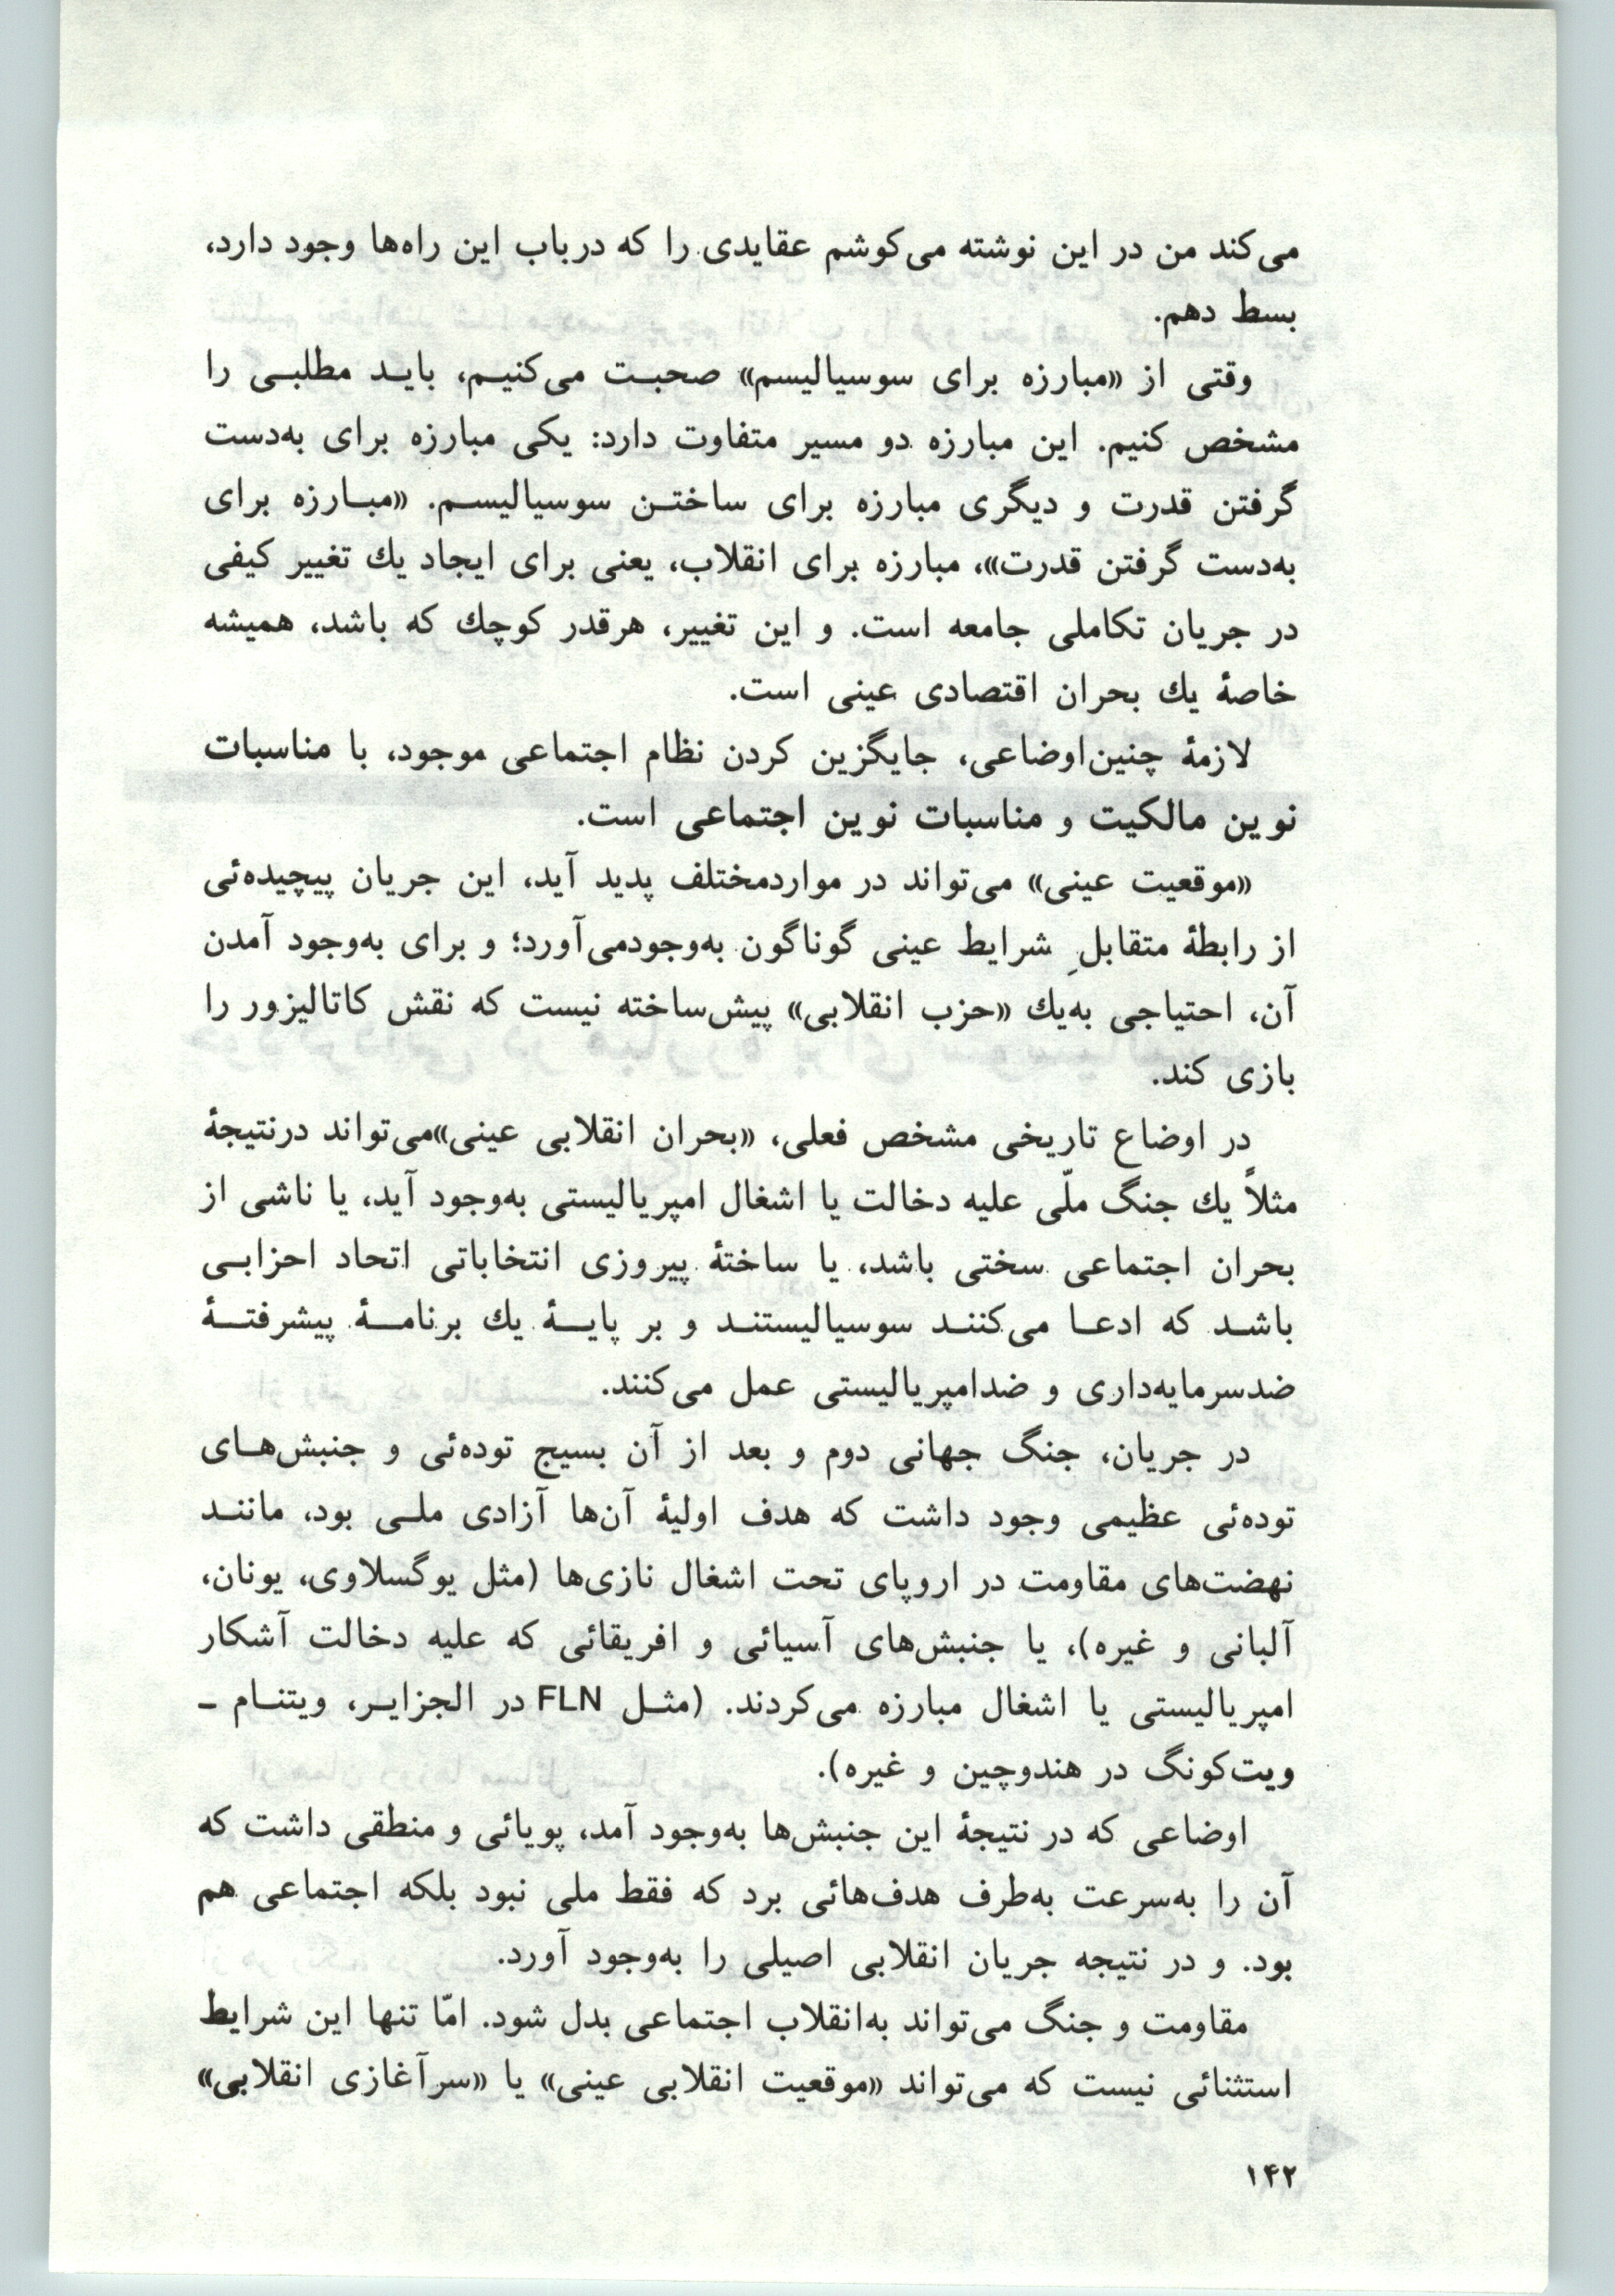 می‌کند من در این نوشته می‌کوشم عقایدی را که درباب این راه‌ها وجود دارد،
بسط دهم.
وقتی از «مبارزه برای سوسیالیسم» صحبت می‌کنیم، باید مطلبی را
مشخص کنیم. این مبارزه دو مسیر متفاوت دارد: یکی مبارزه برای به‌دست
گرفتن قدرت و دیگری مبارزه برای ساختن سوسیالیسم. «مبارزه برای
به‌دست گرفتن قدرت»، مبارزه برای انقلاب، یعنی برای ایجاد یك تغییر کیفی
در جریان تکاملی جامعه است. و این تغییر، هرقدر کوچك که باشد، همیشه
خاصهٔ یك بحران اقتصادی عینی است.
لازمهٔ چنین‌اوضاعی، جایگزین کردن نظام اجتماعی موجود، با مناسبات
نوین مالکیت و مناسبات نوین اجتماعی است.
«موقعیت عینی» می‌تواند در مواردمختلف پدید آید، این جریان پیچیده‌ئی
از رابطهٔ متقابلِ شرایط عینی گوناگون به‌وجودمی‌آورد؛ و برای به‌وجود آمدن
آن، احتیاجی به‌یك «حزب انقلابی» پیش‌ساخته نیست که نقش کاتالیزور را
بازی کند.
در اوضاع تاریخی مشخص فعلی، «بحران انقلابی عینی»می‌تواند درنتیجهٔ
مثلاً یك جنگ ملّی علیه دخالت یا اشغال امپریالیستی به‌وجود آید، یا ناشی از
بحران اجتماعی سختی باشد، یا ساختهٔ پیروزی انتخاباتی اتحاد احزابی
باشد که ادعا می‌کنند سوسیالیستند و بر پایهٔ یك برنامهٔ پیشرفتهٔ
ضدسرمایه‌داری و ضدامپریالیستی عمل می‌کنند.
در جریان، جنگ جهانی دوم و بعد از آن بسیج توده‌ئی و جنبش‌های
توده‌ئی عظیمی وجود داشت که هدف اولیهٔ آن‌ها آزادی ملی بود، مانند
نهضت‌های مقاومت در اروپای تحت اشغال نازی‌ها (مثل یوگسلاوی، یونان،
آلبانی و غیره)، یا جنبش‌های آسیائی و افریقائی که علیه دخالت آشکار
امپریالیستی یا اشغال مبارزه می‌کردند. (مثل FLN در الجزایر، ویتنام ـ
ویت‌کونگ در هندوچین و غیره).
اوضاعی که در نتیجهٔ این جنبش‌ها به‌وجود آمد، پویائی و منطقی داشت که
آن را به‌سرعت به‌طرف هدف‌هائی برد که فقط ملی نبود بلکه اجتماعی هم
بود. و در نتیجه جریان انقلابی اصیلی را به‌وجود آورد.
مقاومت و جنگ می‌تواند به‌انقلاب اجتماعی بدل شود. امّا تنها این شرایط
استثنائی نیست که می‌تواند «موقعیت انقلابی عینی» یا «سرآغازی انقلابی»
۱۴۲